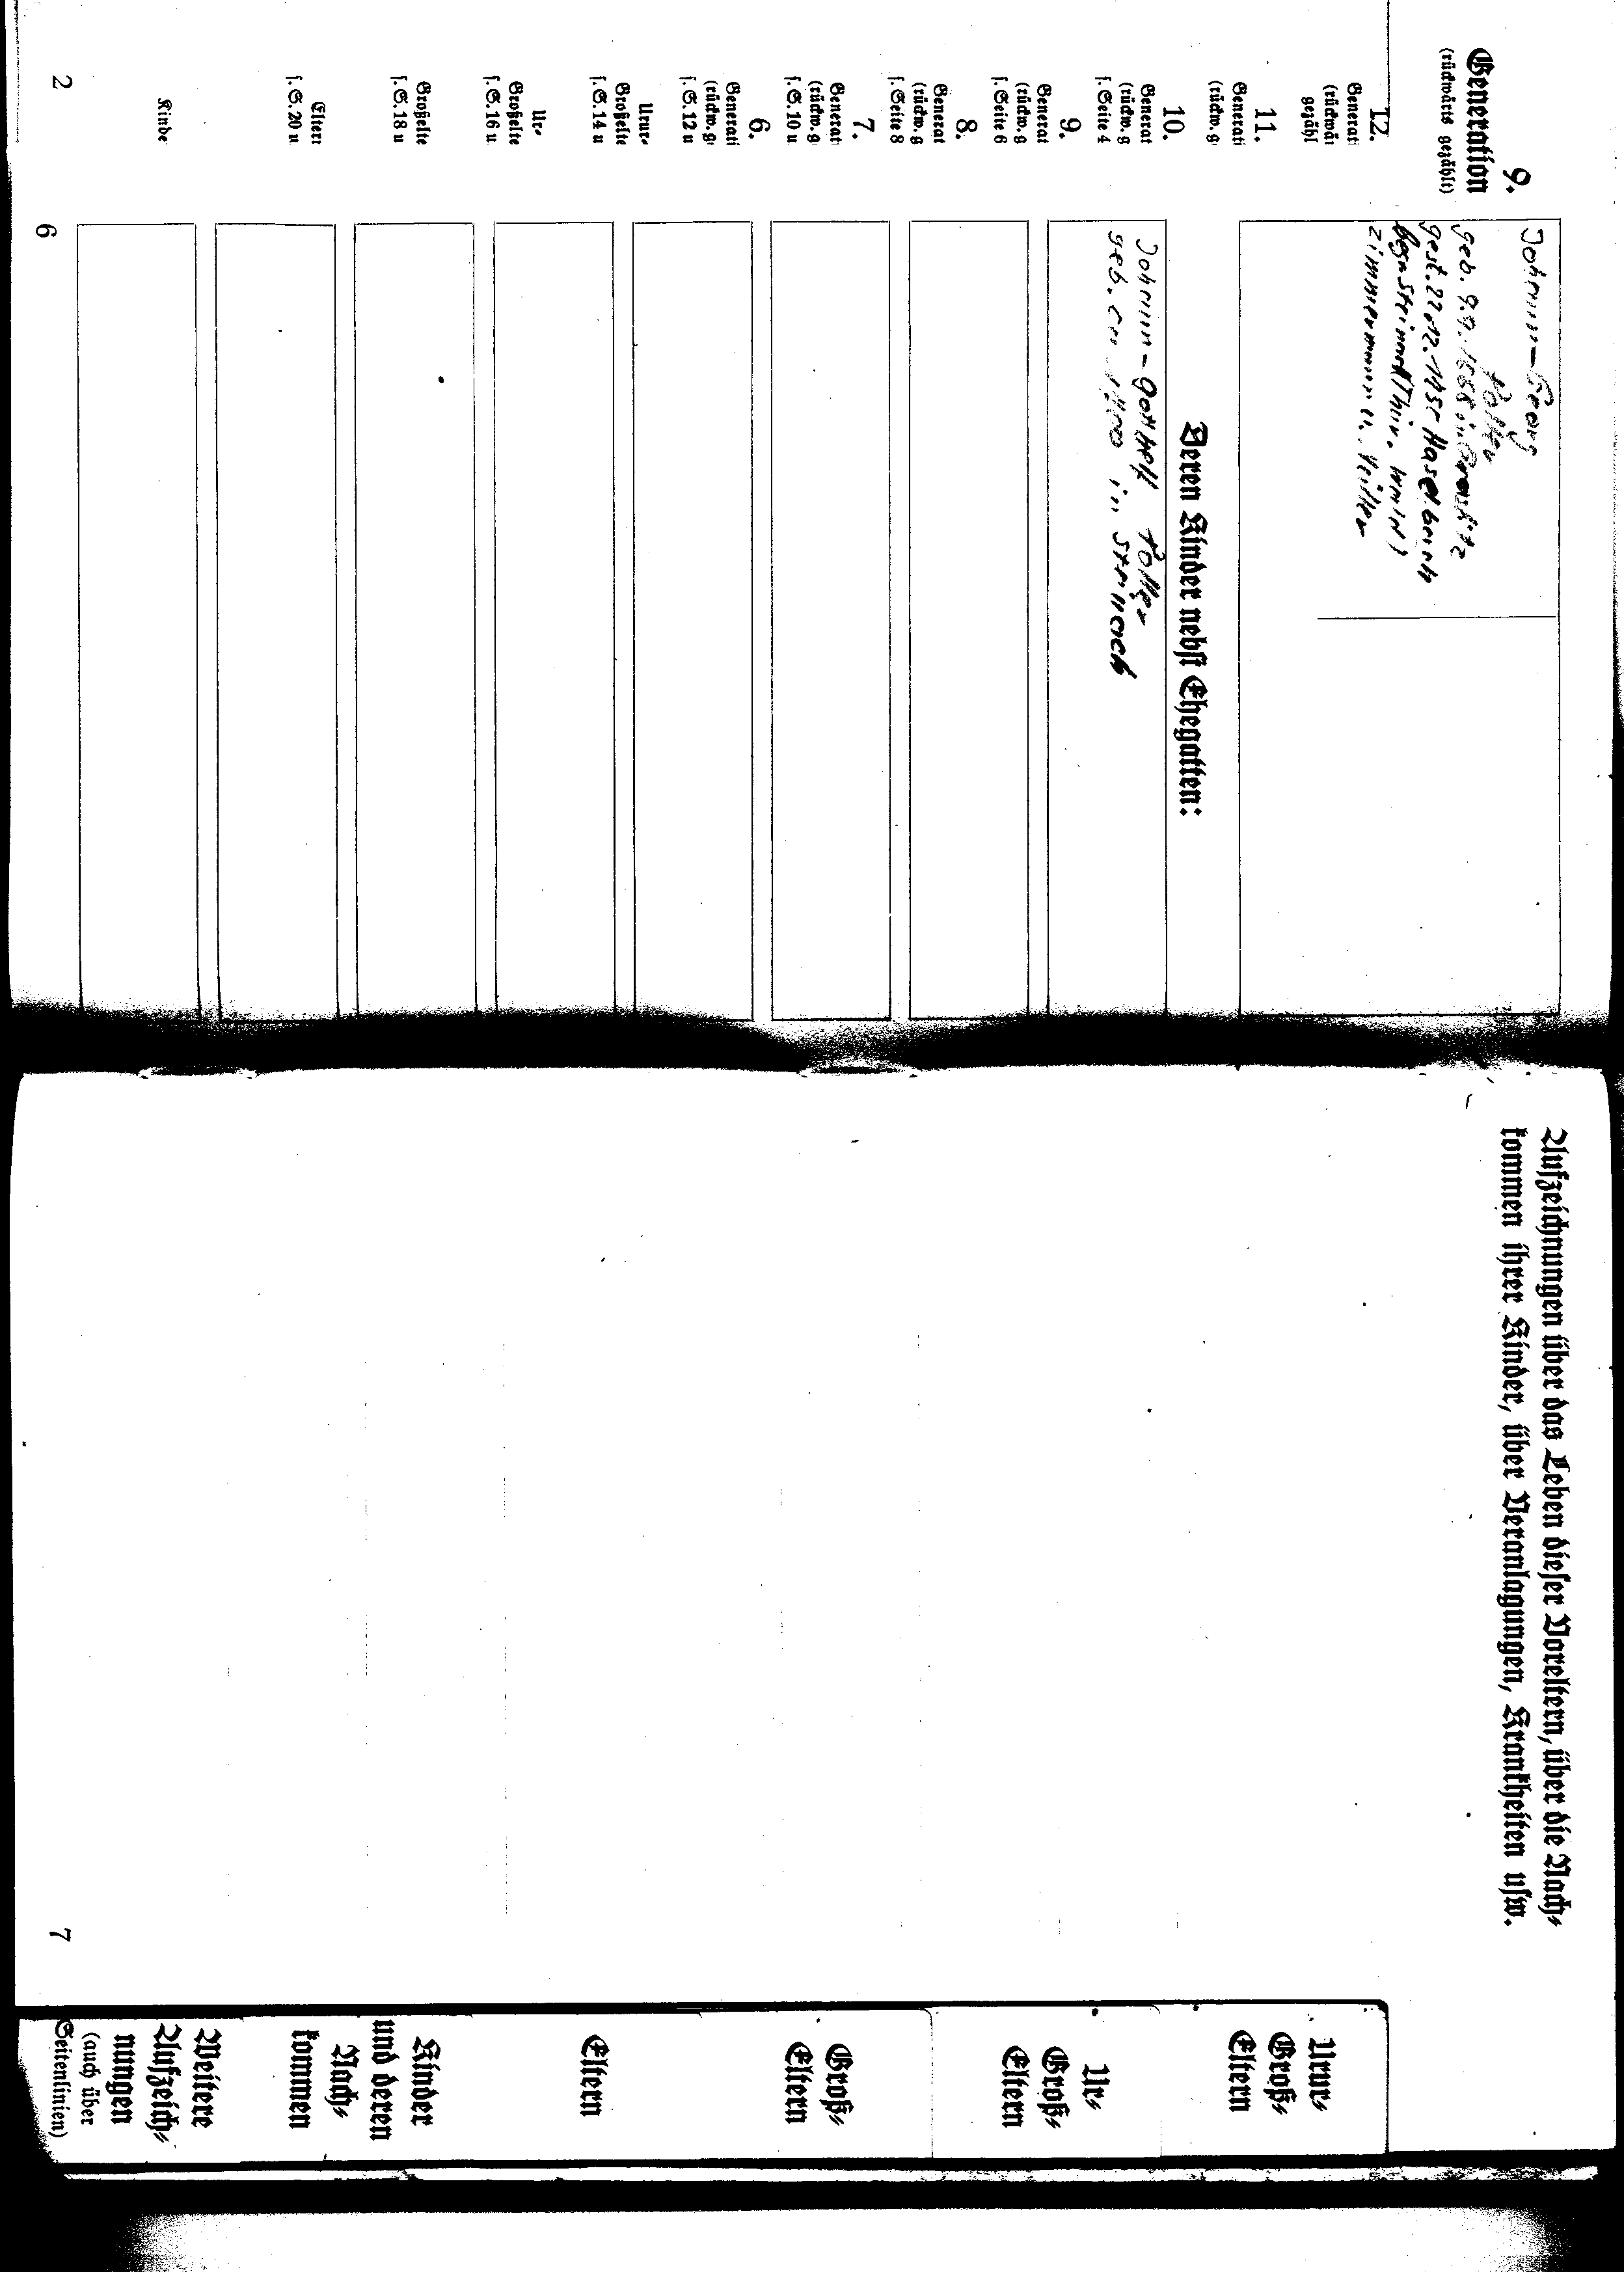 9.
Generation
(rückwärts gezählt)
12.
Generati
(rückwär
gezähl
11.
Generati
(rückw. g
10.
Generat
(rückw. g
s. Seite 4
9.
Generat
(rückw. g
s. Seite 6
8.
Generat
(rückw. g
s. Seite 8
7.
Generat
(rückw. g
s. S. 10 u
6.
Generati
(rückw. g
s. S. 12 u
Urur-
Großelte
s. S. 14 u
Ur-
Großelte
s. S. 16 u
Großelte
s. S. 18 u
Elter
s. S. 20 u
Kinde
2
Johann-Georg
geb. 9.9. in
gest. 22.12. Haselbach
Steinach/Thür. Wald)
Zimmermann u.
Deren Kinder nebst Ehegatten:
Johann-Gotthelf
geb. in Steinach
6
Aufzeichnungen über das Leben dieser Voreltern, über die Nach-
kommen ihrer Kinder, über Veranlagungen, Krankheiten usw.
7
Urur-
Groß-
Eltern
Ur-
Groß-
Eltern
Groß-
Eltern
Eltern
Kinder
und deren
Nach-
kommen
Weitere
Aufzeich-
nungen
(auch über
Seitenlinien)